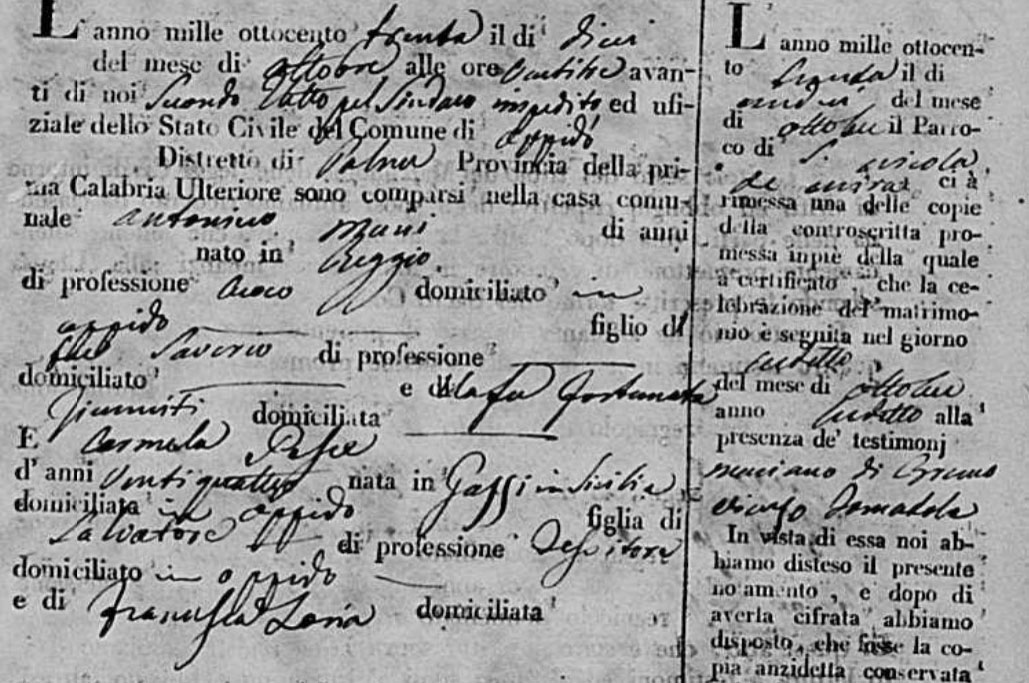 L'anno mille ottocento trenta il di dieci
del mese di ottobre alle ore ventitre avan-
ti di noi Secondo Eletto pel Sindaco impedito ed ufi-
ziale dello Stato Civile del Comune di oppido
Distretto di Palmi Provincia della pri-
ma Calabria Ulteriore sono comparsi nella casa comu-
nale antonino di anni
nato in Reggio
di professione domiciliato in
oppido figlio di
fu Saverio di professione
domiciliato e della fu Fortunata
domiciliata
E Carmela
d'anni Ventiquattro nata in in Sicilia
domiciliata in oppido figlia di
Salvatore di professione
domiciliato in oppido
e di domiciliata
L'anno mille ottocen-
to trenta il di
del mese
di ottobre il Parro-
co di S. nicola
de ci à
rimessa una delle copie
della controscritta pro-
messa inpiè della quale
a certificato che la ce-
lebrazione del matrimo-
nio è seguita nel giorno
sudetto
del mese di ottobre
anno sudetto alla
presenza de' testimonj
di
In vista di essa noi ab-
biamo disteso il presente
notamento, e dopo di
averla cifrata abbiamo
disposto, che fosse la co-
pia anzidetta conservata